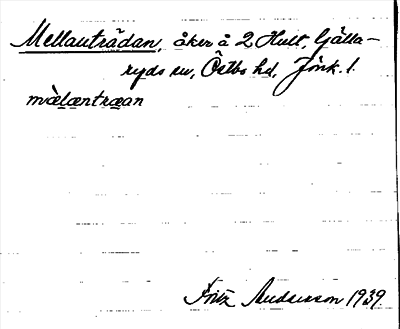 Mellanträdan, åker å 2 Hult, Gälla-
ryds sn, Östbo hd, Jönk. l.
mæ̀læntræan
Fritz Andersson 1939.